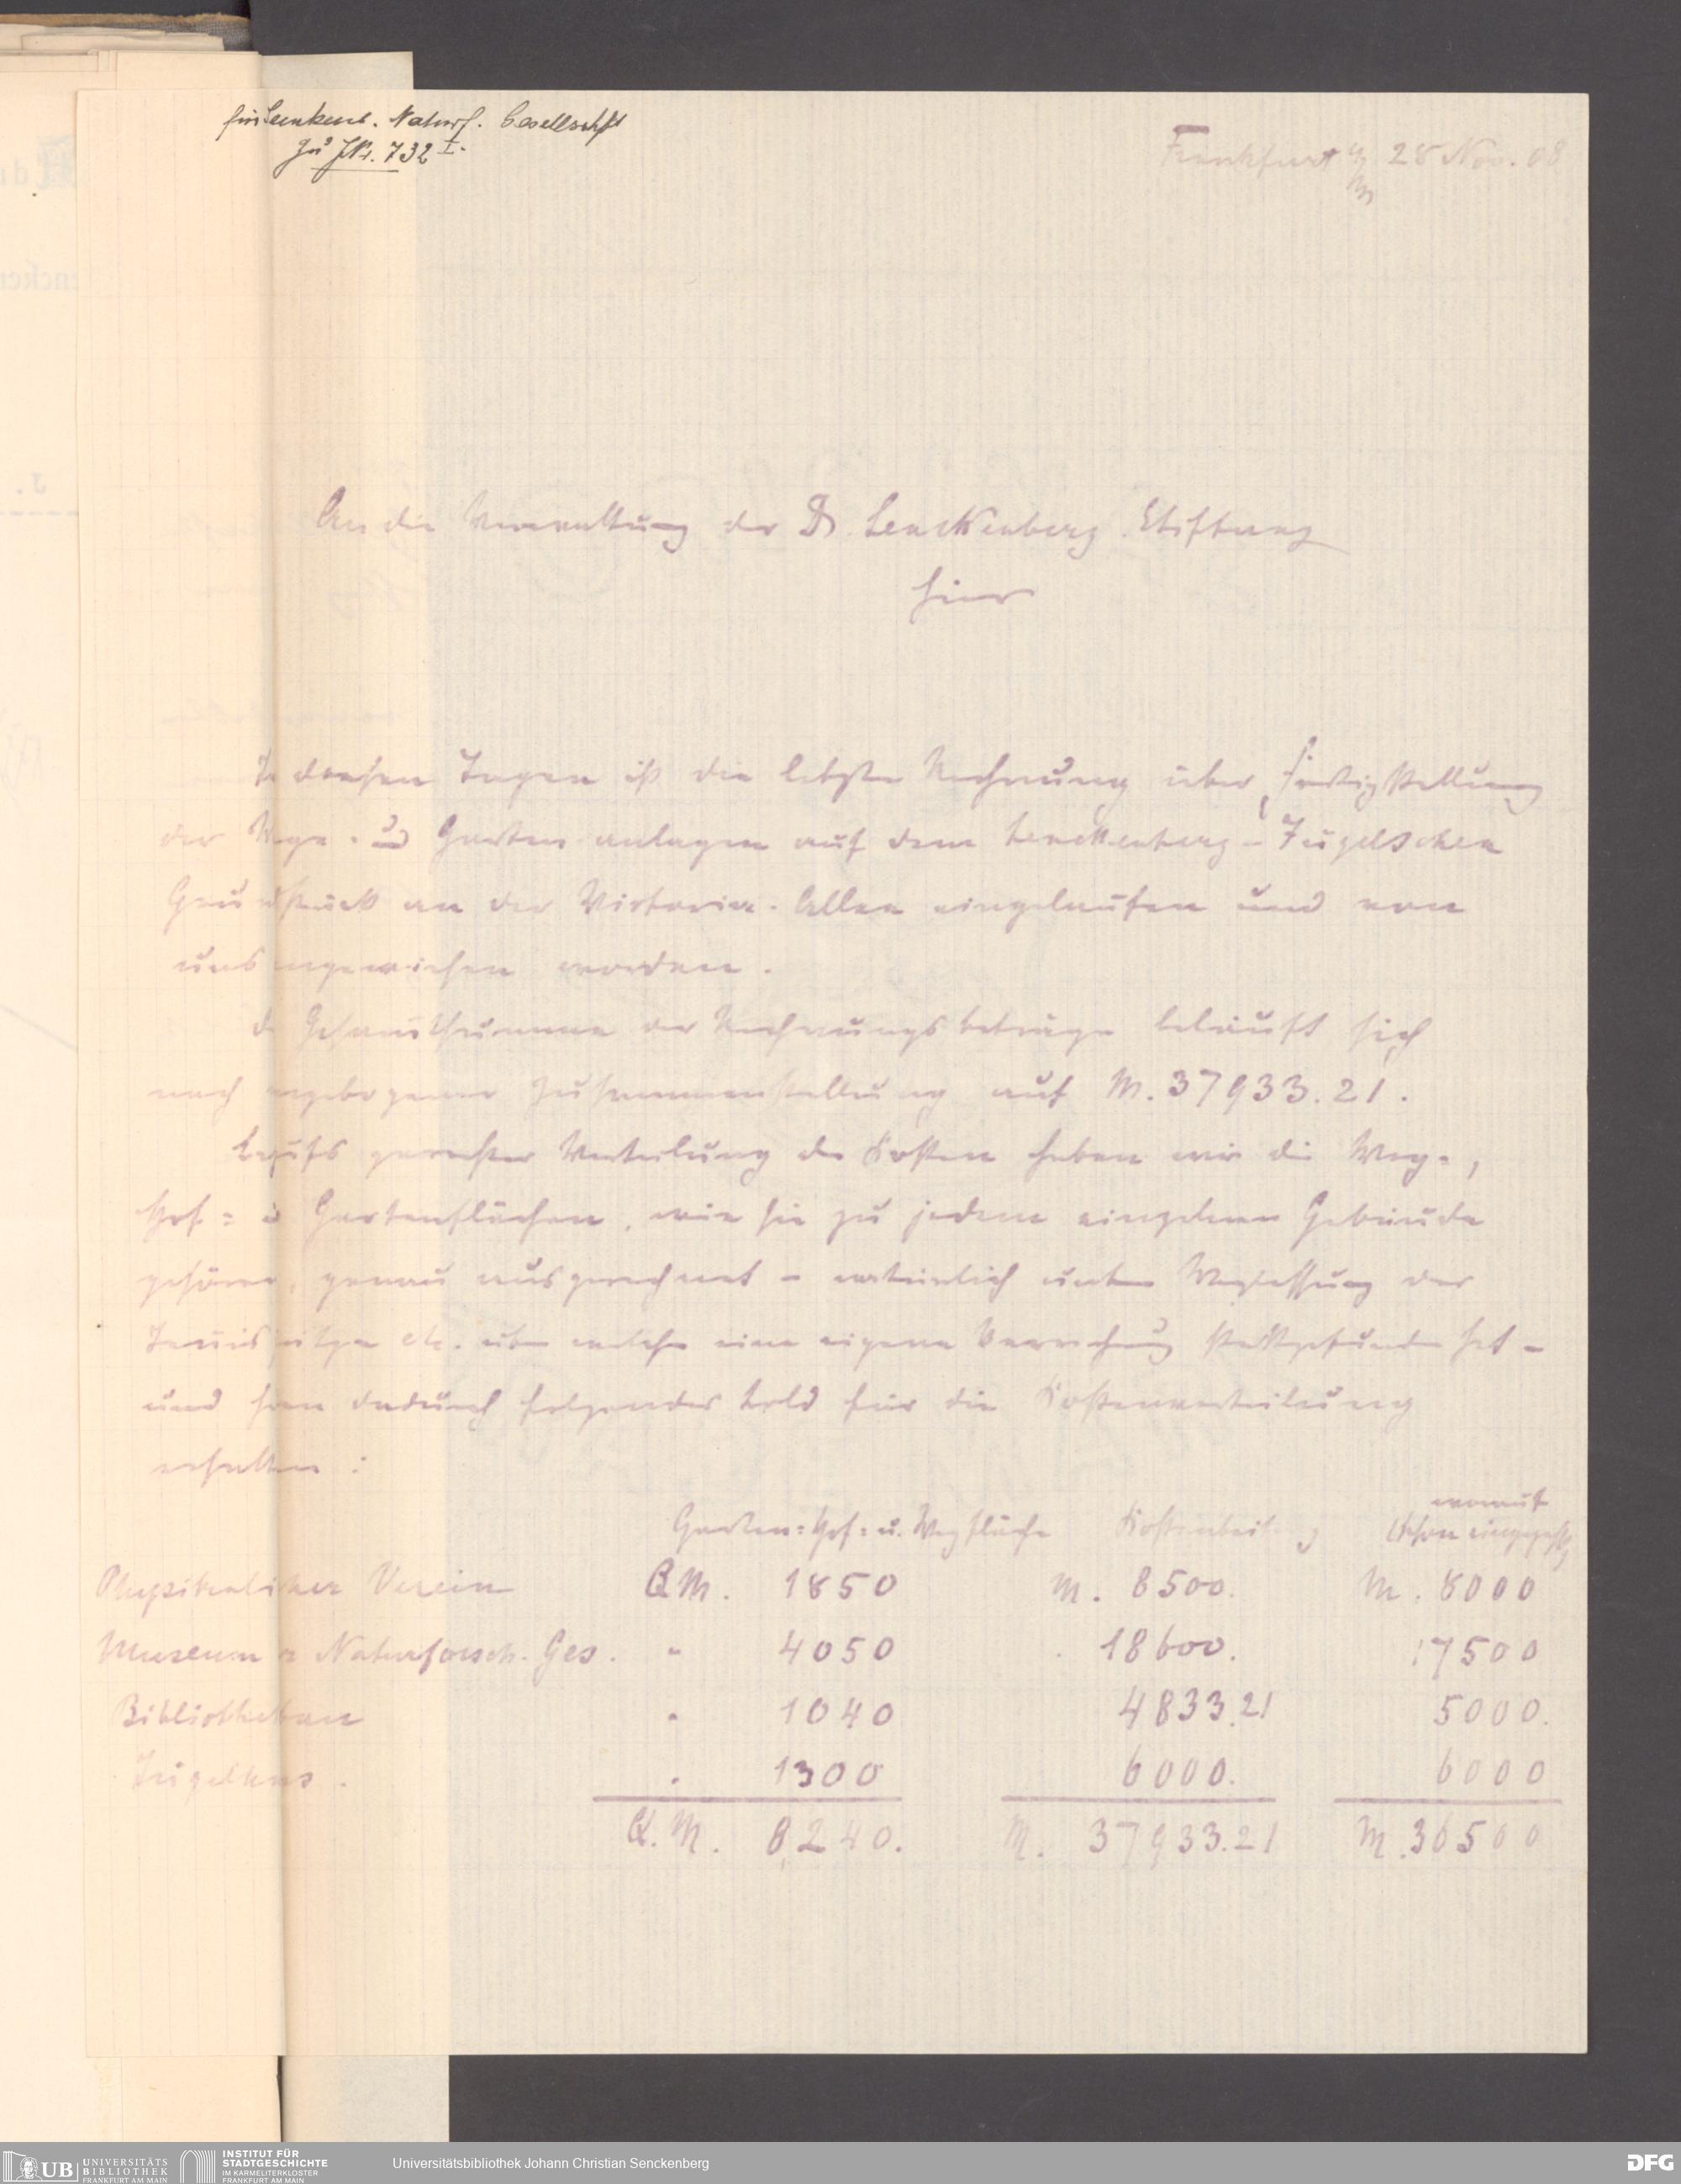 für Senkenb. Naturf. Gesellschft
zu JNr. 732 I.
Frankfurt a/M 28 Nov. 08
An die Verwaltung der Dr. Senckenberg. Stiftung
hier
In diesen Tagen ist die letzte Rechnung über Fertigstellung
der Wege- und Gartenanlagen auf dem Senckenberg-Jügelschen
Grundstück an der Victoria-Allee eingelaufen und von
uns angewiesen worden.
Die Gesamtsumme der Rechnungsbeträge beläuft sich
nach angebogener Zusammenstellung auf M. 37933.21.
Behufs gerechter Verteilung der Kosten haben wir die Weg-,
Hof- u Gartenflächen, wie sie zu jedem einzelnen Gebäude
gehören, genau ausgerechnet - natürlich unter Weglassung der
Tennisplätze etc. über welche eine eigene Verrechnung stattgefunden hat -
und haben dadurch folgendes Bild für die Kostenverteilung
erhalten :
Garten- Hof- u. Wegfläche Kostenbeitrag worauf
schon eingezahlt
Physikalischer Verein QM. 1850 M. 8500. M. 8000
Museum Naturforsch. Ges. " 4050 18600. 17500
Bibliothekbau " 1040 4833.21 5000.
Jügelhaus. " 1300 6000. 6000
Q.M. 8240. M. 37933.21 M. 36500
UB UNIVERSITÄTS
BIBLIOTHEK
FRANKFURT AM MAIN
INSTITUT FÜR
STADTGESCHICHTE
IM KARMELITERKLOSTER
FRANKFURT AM MAIN
Universitätsbibliothek Johann Christian Senckenberg
DFG